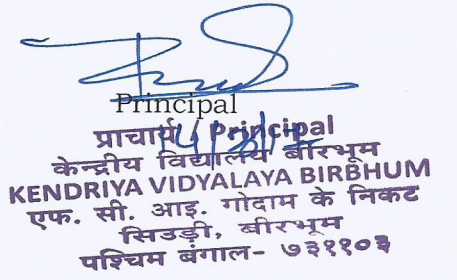 Principal
प्राचार्य / Principal
केन्द्रीय विद्यालय बीरभूम
KENDRIYA VIDYALAYA BIRBHUM
एफ. सी. आइ. गोदाम के निकट
सिउड़ी, बीरभूम
पश्चिम बंगाल- ७३११०३